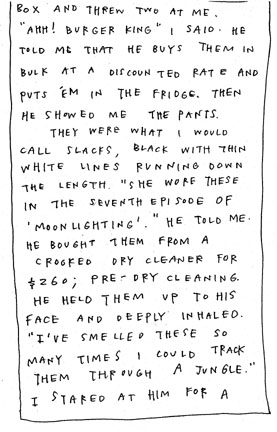 BOX AND THREW TWO AT ME.
"AHH! BURGER KING" I SAID. HE
TOLD ME THAT HE BUYS THEM IN
BULK AT A DISCOUNTED RATE AND
PUTS 'EM IN THE FRIDGE. THEN
HE SHOWED ME THE PANTS.
THEY WERE WHAT I WOULD
CALL SLACKS, BLACK WITH THIN
WHITE LINES RUNNING DOWN
THE LENGTH. "SHE WORE THESE
IN THE SEVENTH EPISODE OF
'MOONLIGHTING'." HE TOLD ME.
HE BOUGHT THEM FROM A
CROOKED DRY CLEANER FOR
$260; PRE-DRY CLEANING.
HE HELD THEM UP TO HIS
FACE AND DEEPLY INHALED.
"I'VE SMELLED THESE SO
MANY TIMES I COULD TRACK
THEM THROUGH A JUNGLE."
I STARED AT HIM FOR A